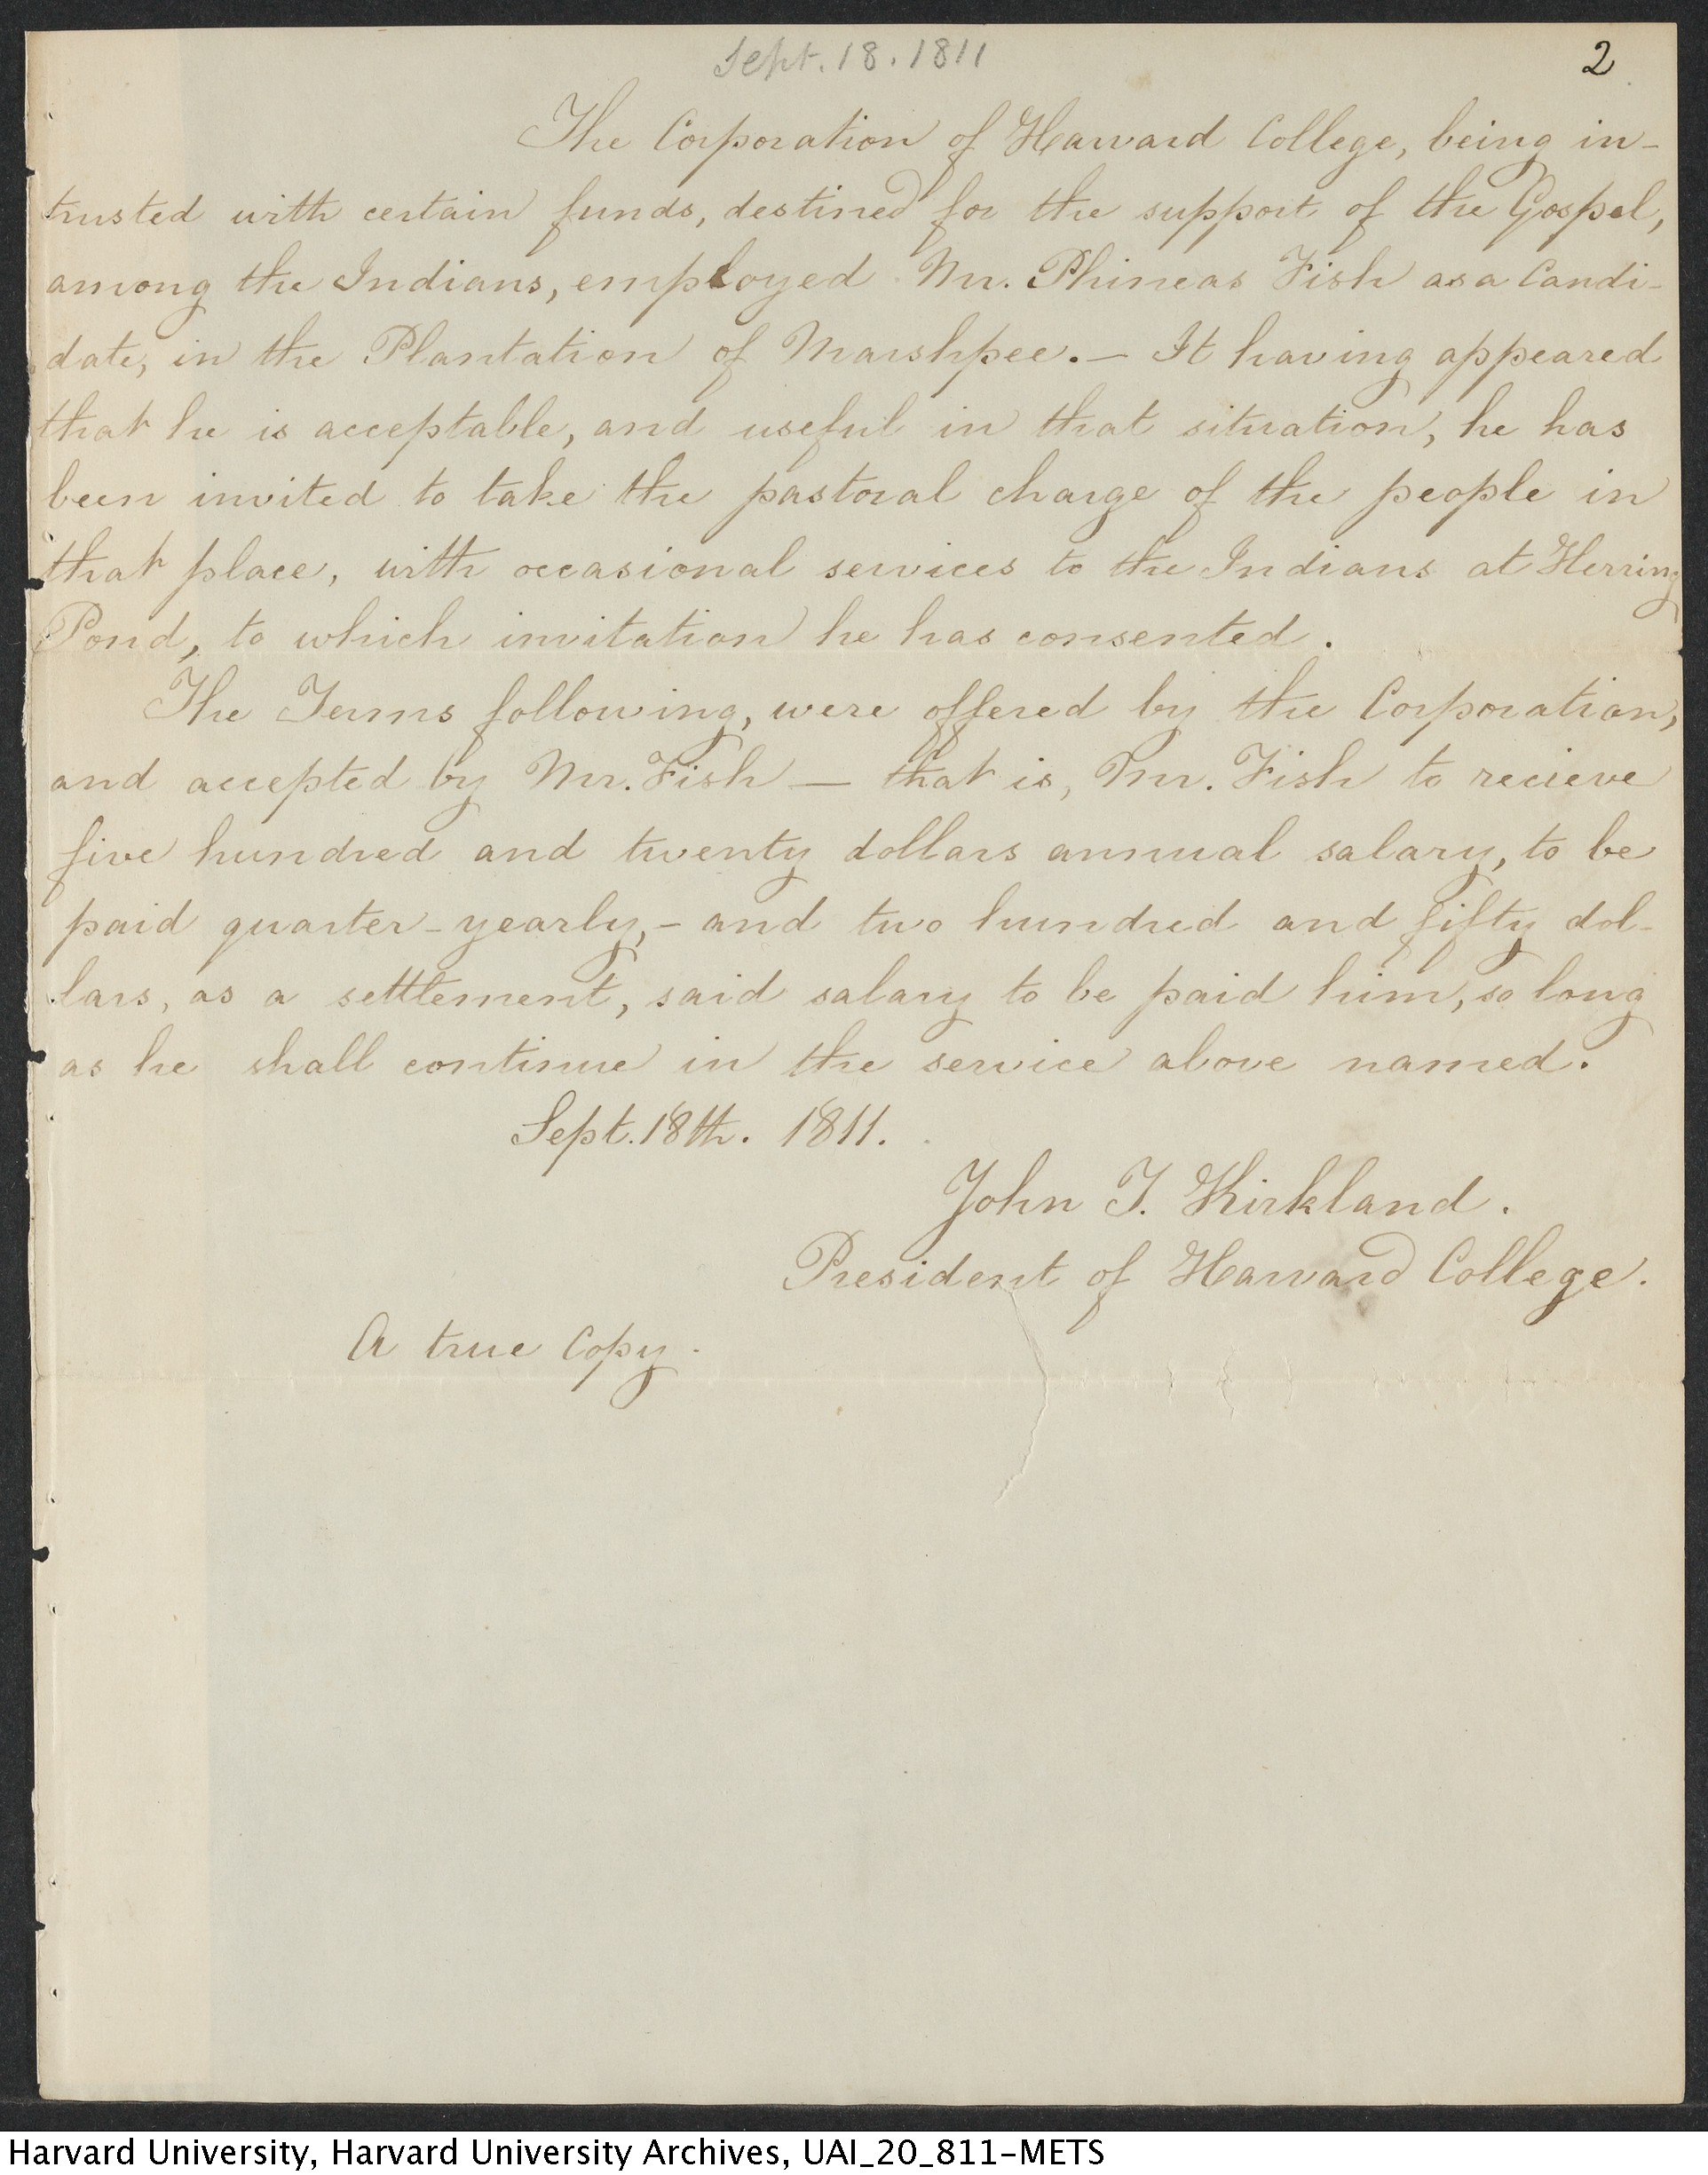 Sept. 18. 1811
2
The Corporation of Harvard College, being in-
trusted with certain funds, destined for the support of the Gospel,
among the Indians, employed Mr. Phineas Fish as a Candi-
date, in the Plantation of Marshpee. — It having appeared
that he is acceptable, and useful in that situation, he has
been invited to take the pastoral charge of the people in
that place, with occasional services to the Indians at Herring
Pond, to which invitation he has consented.
The Terms following, were offered by the Corporation,
and accepted by Mr. Fish — that is, Mr. Fish to recieve
five hundred and twenty dollars annual salary, to be
paid quarter-yearly, - and two hundred and fifty dol-
lars, as a settlement, said salary to be paid him, so long
as he shall continue in the service above named.
Sept. 18th. 1811.
John T. Kirkland.
President of Harvard College.
A true Copy.
Harvard University, Harvard University Archives, UAI_20_811-METS